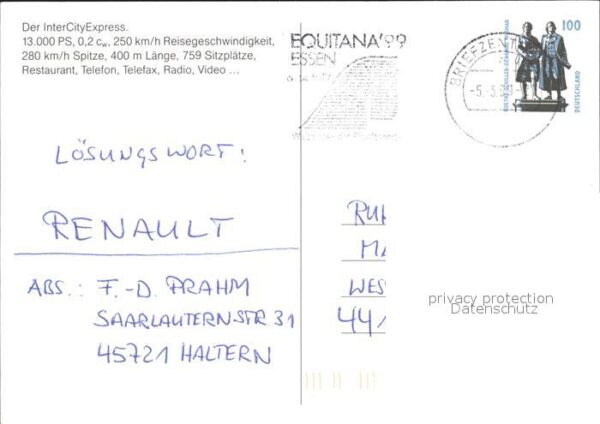 Der InterCityExpress.
13.000 PS, 0,2 cw, 250 km/h Reisegeschwindigkeit,
280 km/h Spitze, 400 m Länge, 759 Sitzplätze,
Restaurant, Telefon, Telefax, Radio, Video ...
EQUITANA'99
ESSEN
BRIEFZENT
-5. 3.99
100
DEUTSCHLAND
LÖSUNGSWORT:
RENAULT
ABS.: F.-D. PRAHM
SAARLAUTERNSTR 31
45721 HALTERN
RUH
MA
WES
441
privacy protection
Datenschutz